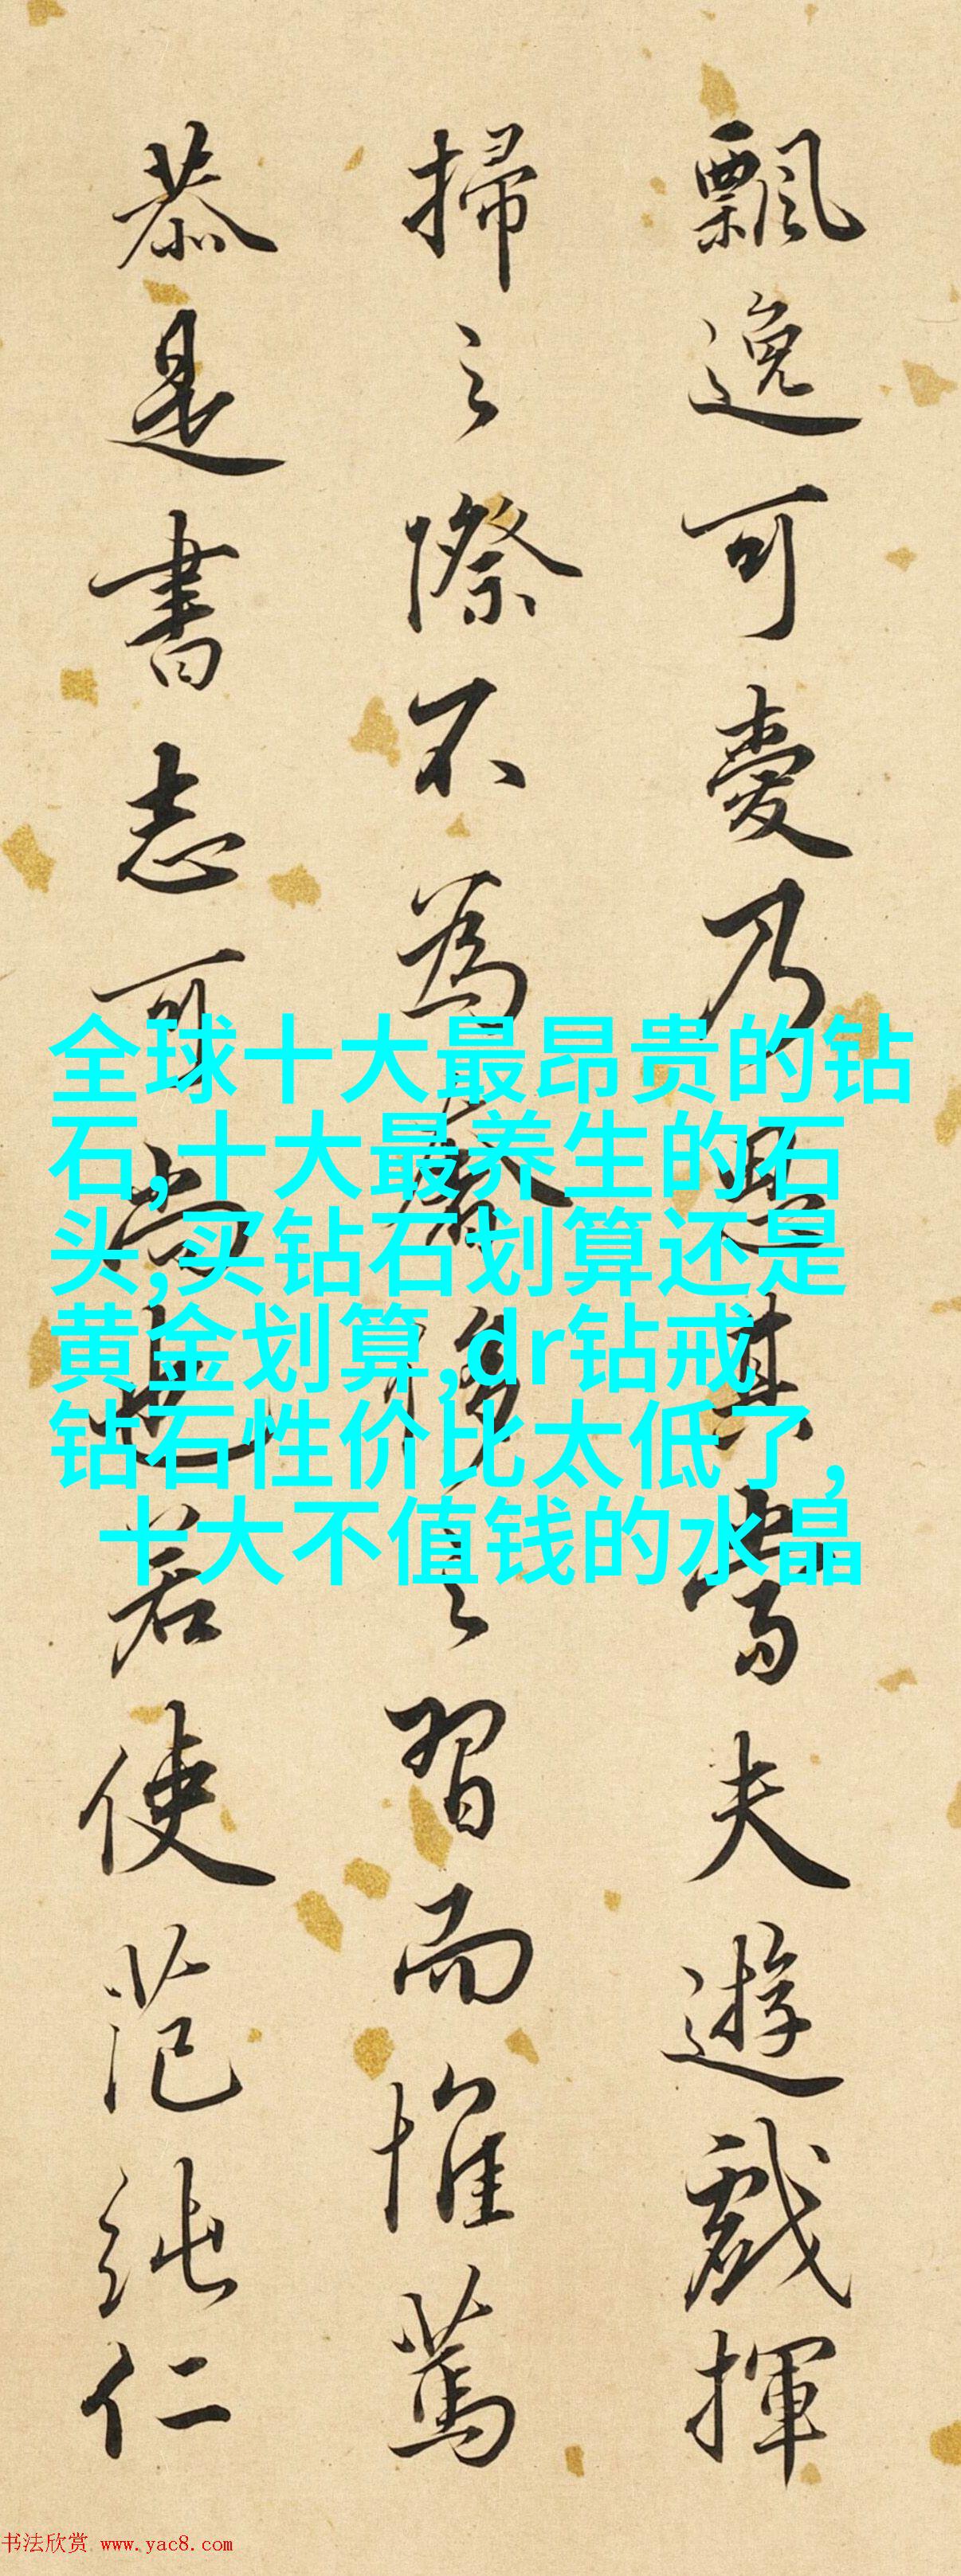 飄逸可愛乃過其書夫遊戲揮
掃之際不為/侈之習而惟篤
恭是書志可尚也若使范純仁
全球十大最昂贵的钻
石,十大最养生的石
头,买钻石划算还是
黄金划算,dr钻戒
钻石性价比太低了,
十大不值钱的水晶
书法欣赏 www.yac8.com